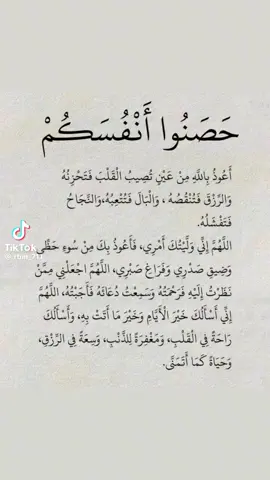 حَصَنُوا أَنْفُسَكُمْ
أَعُوذُ بِاللَّهِ مِنْ عَيْنٍ تُصِيبُ الْقَلْبَ فَتَحْزِنُهُ
وَالرِّزْقَ فَتُنْقُصُهُ ، وَالْبَالَ فَتُتْعِبُهُ،وَالنَّجَاحُ
فَتَفْشَلُهُ.
اللَّهُمَّ إِنِّي وَلَّيْتُكَ أَمْرِي، فَأَعُوذُ بِكَ مِنْ سُوءِ حَظِّي
وَضِيقِ صَدْرِي وَفَرَاغِ صَبْرِي، اللَّهُمَّ اجْعَلْنِي مِمَّنْ
نَظَرْتُ إِلَيْهِ فَرَحْمَتُهُ وَسَمِعْتُ دُعَائَهُ فَأَجَبْتُهُ، اللَّهُمَّ
إِنِّي أَسْأَلُكَ خَيْرَ الْأَيَّامِ وَخَيْرَ مَا أَتَتْ بِهِ، وَأَسْأَلُكَ
رَاحَةً فِي الْقَلْبِ، وَمَغْفِرَةً لِلذَّنْبِ، وَسِعَةً فِي الرِّزْقِ،
وَحَيَاةً كَمَا أَتَمَنَّى.
TikTok